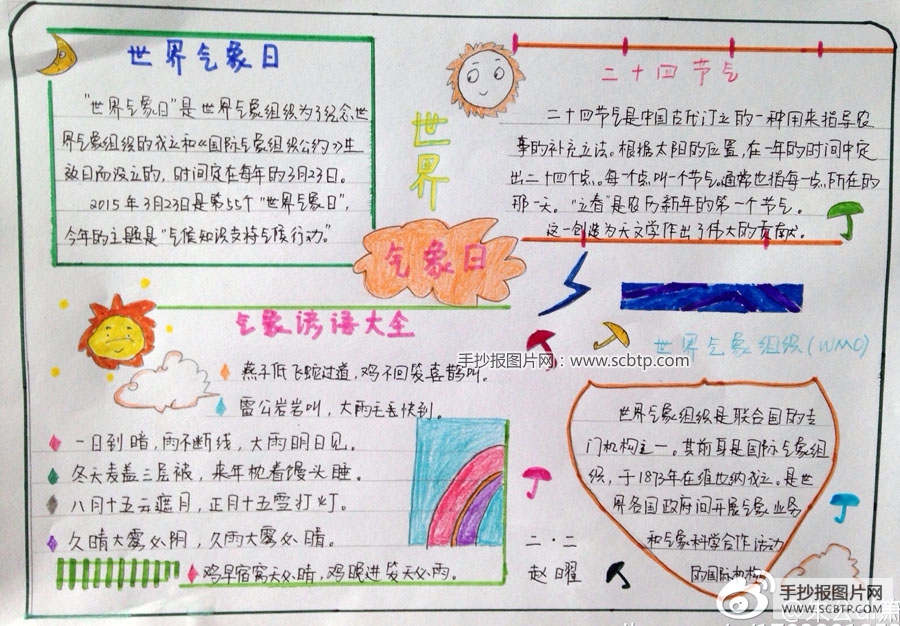 世界气象日
"世界气象日"是世界气象组织为了纪念世
界气象组织的成立和《国际气象组织公约》生
效日而设立的，时间定在每年的3月23日。
2015年3月23日是第55个"世界气象日"，
今年的主题是"气候知识支持气候行动"。
世界
气象日
二十四节气
二十四节气是中国古代订立的一种用来指导农
事的补充立法。根据太阳的位置，在一年的时间中定
出二十四个点。每个点叫一个节气。通常也指每一点所在的
那一天。"立春"是农历新年的第一个节气。
这一创造为天文学作出了伟大的贡献。
气象谚语大全
燕子低飞蛇过道，鸡不回笼喜鹊叫。
雷公岩岩叫，大雨毛毛快到。
一日到暗，雨不断线，大雨明日见。
冬天麦盖三层被，来年枕着馒头睡。
八月十五云遮月，正月十五雪打灯。
久晴大雾必阴，久雨大雾必晴。
鸡早宿窝天必晴，鸡晚进笼天必雨。
手抄报图片网：www.scbtp.com
世界气象组织(WMO)
世界气象组织是联合国的专
门机构之一。其前身是国际气象组
织，于1873年在维也纳成立。是世
界各国政府间开展气象业务
和气象科学合作活动
的国际机构
二·二
赵曜
手抄报图片网
WWW.SCBTP.COM